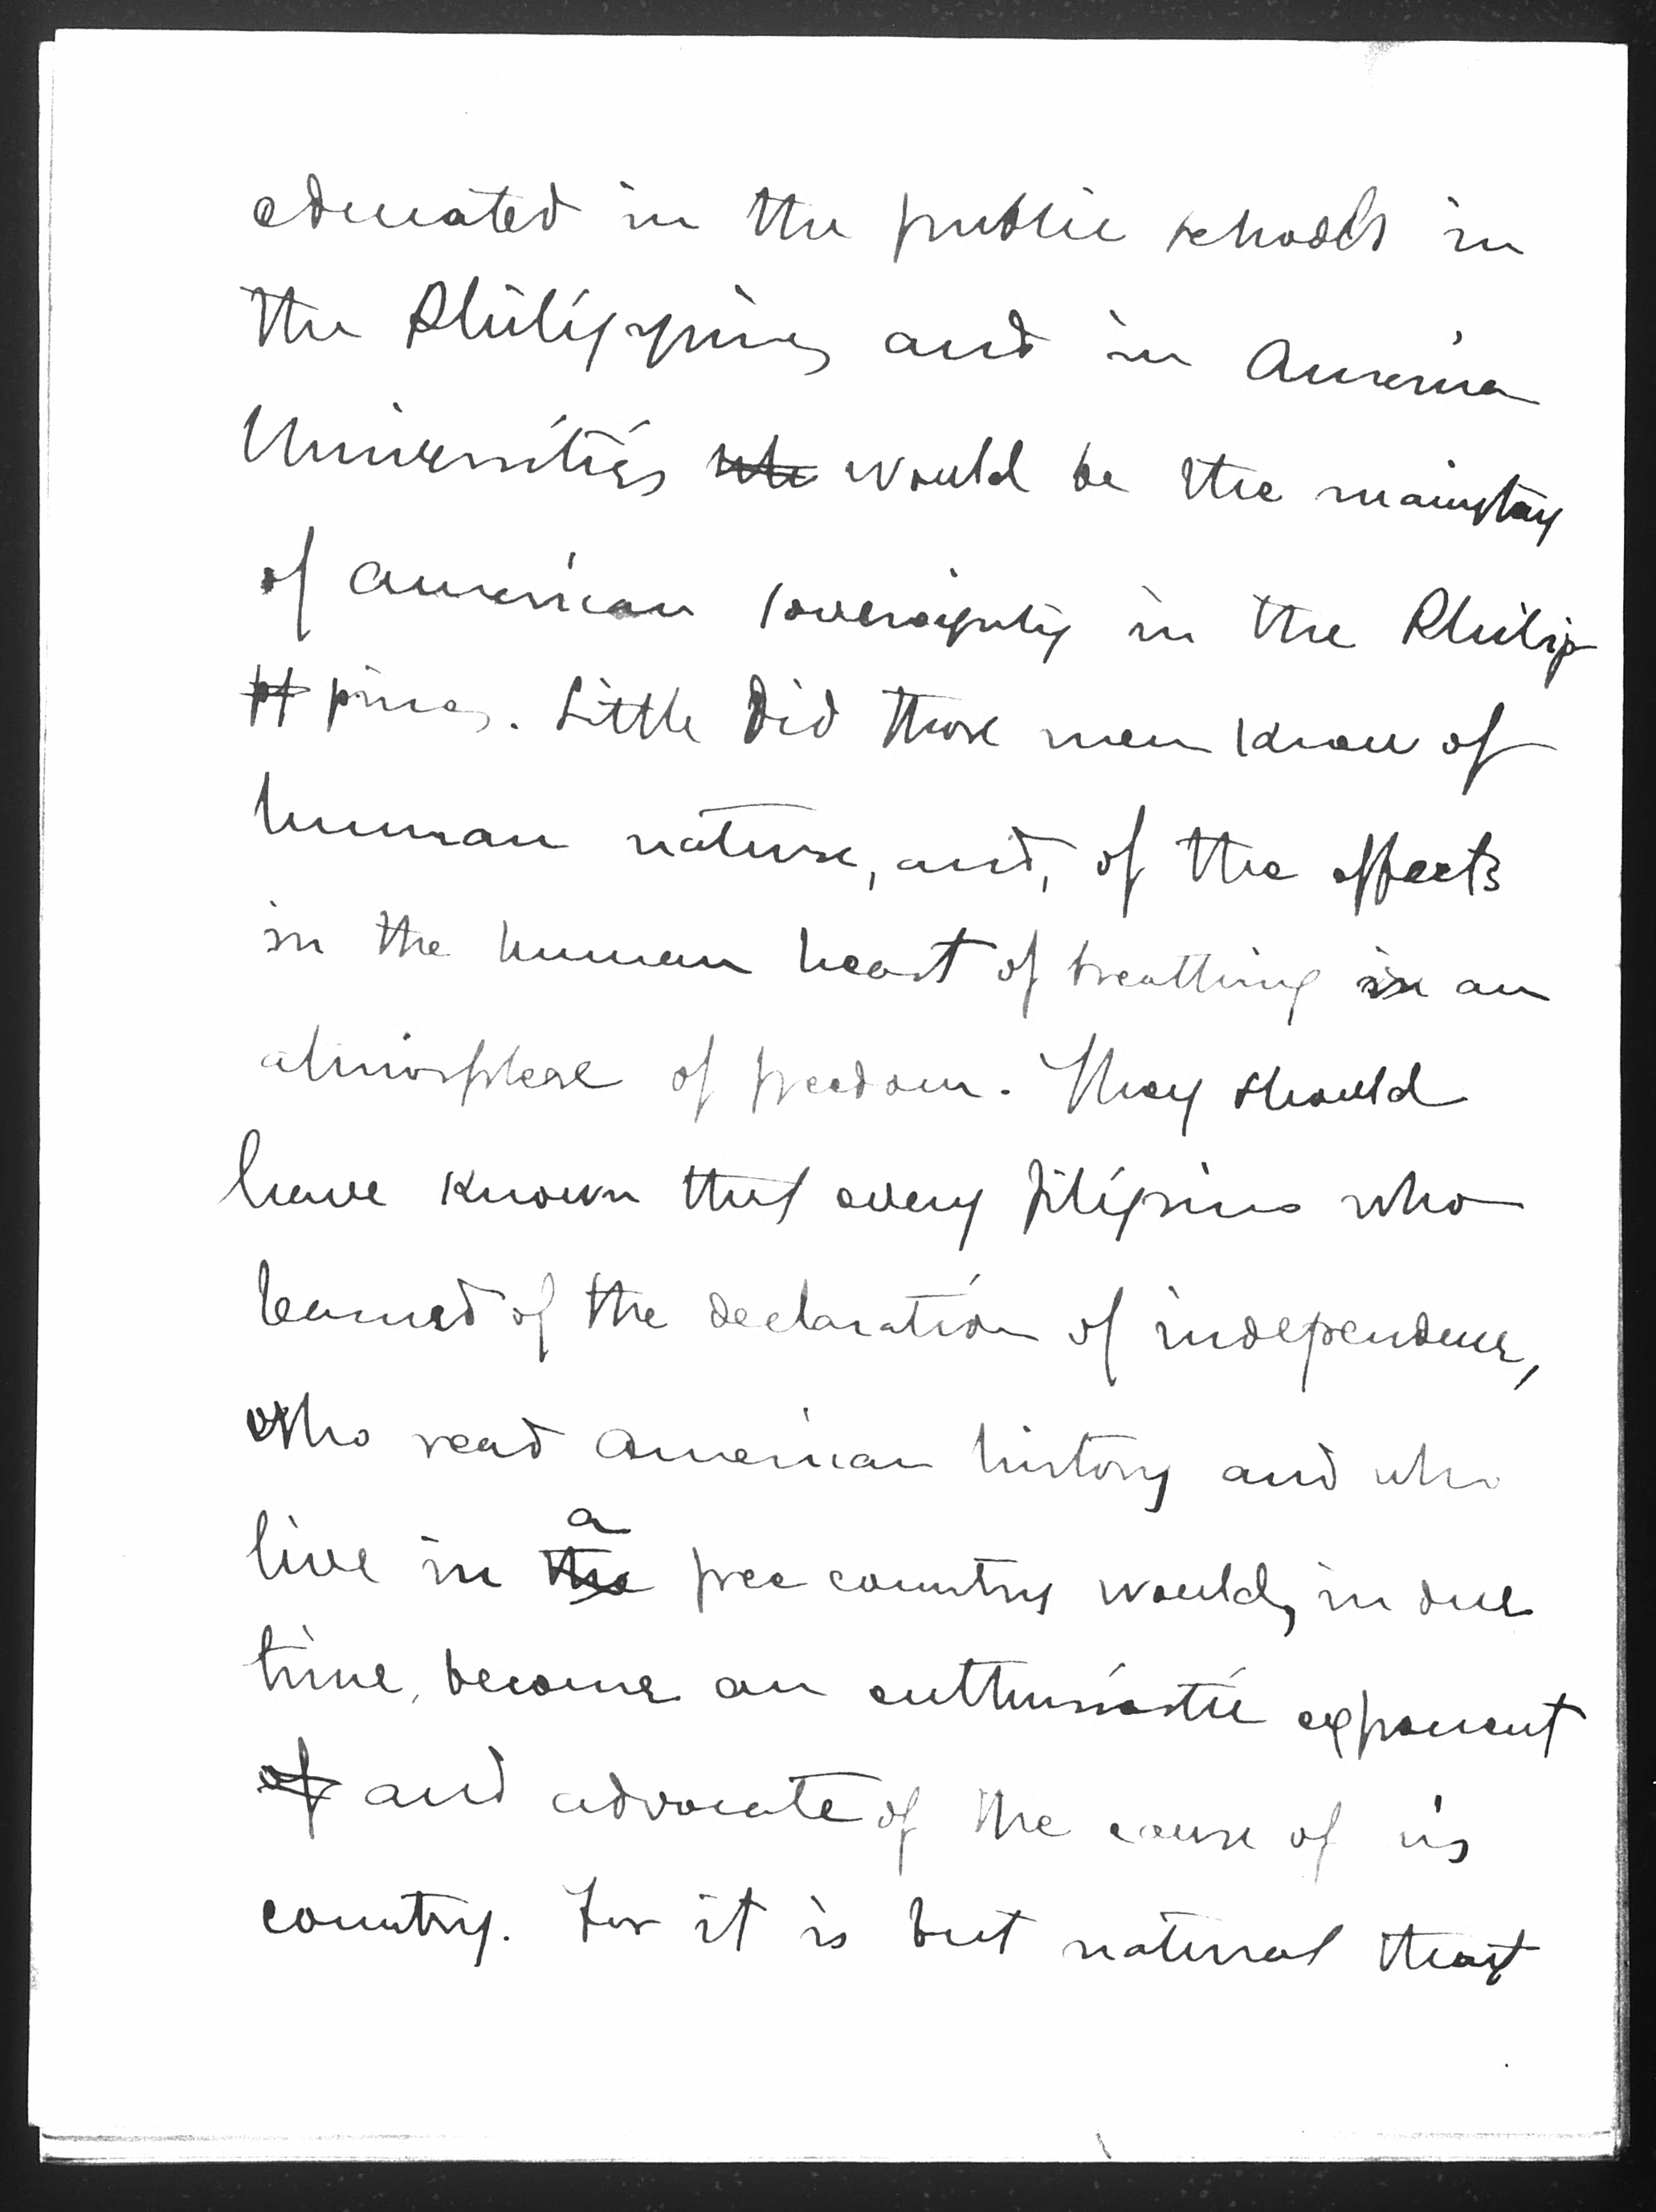 educated in the public schools in
the Philippines and in America
Universities would be the mainstay
of American sovereignty in the Philip
pines. Little did those men know of
human nature, and, of the effects
in the human heart of breathing in an
atmosphere of freedom. They should
have known that every filipino who
learned of the declaration of independence,
who read American history and who
live in a free country would, in due
time, become an enthusiastic exponent
of and advocate of the cause of is
country. For it is but natural that